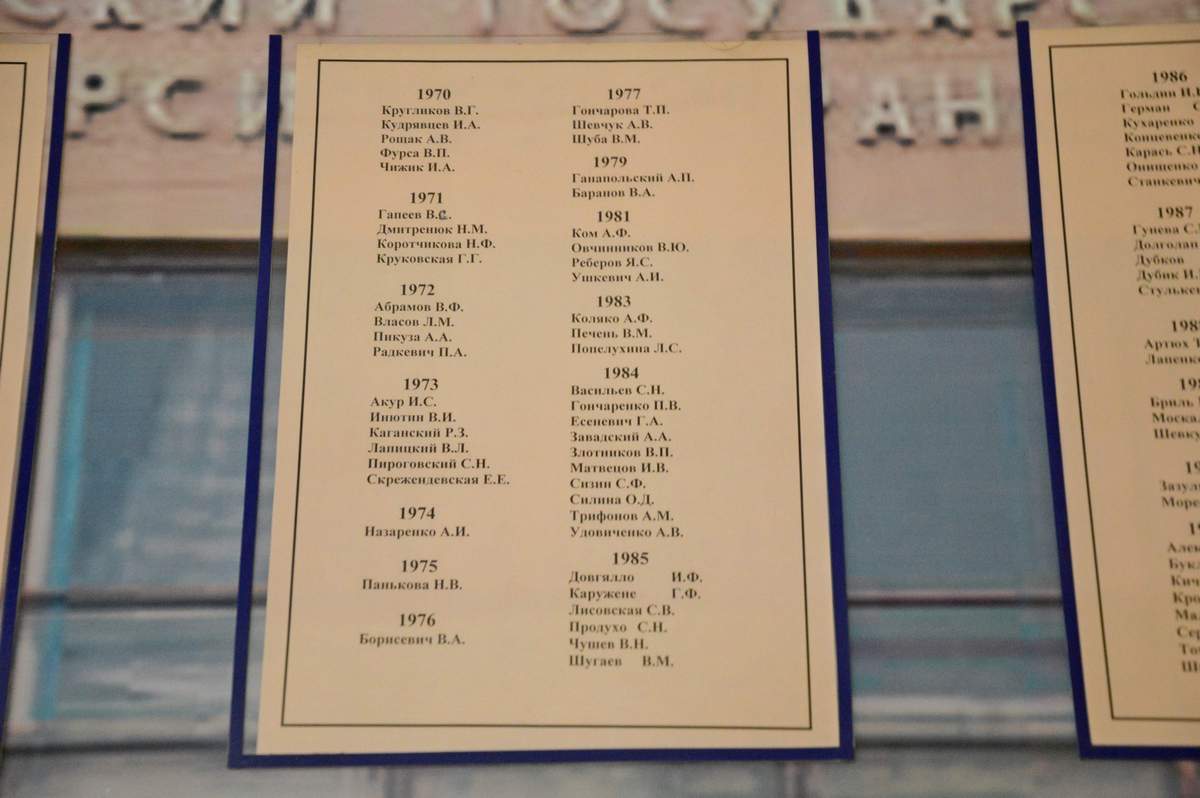 1970
Кругликов В.Г.
Кудрявцев И.А.
Рощак А.В.
Фурса В.П.
Чижик И.А.
1971
Гапеев В.С.
Дмитренюк Н.М.
Коротчикова Н.Ф.
Круковская Г.Г.
1972
Абрамов В.Ф.
Власов Л.М.
Пикуза А.А.
Радкевич П.А.
1973
Акур И.С.
Инютин В.И.
Каганский Р.З.
Лапицкий В.Л.
Пироговский С.Н.
Скрежендевская Е.Е.
1974
Назаренко А.И.
1975
Панькова Н.В.
1976
Борисевич В.А.
1977
Гончарова Т.П.
Шевчук А.В.
Шуба В.М.
1979
Ганапольский А.П.
Баранов В.А.
1981
Ком А.Ф.
Овчинников В.Ю.
Реберов Я.С.
Ушкевич А.И.
1983
Коляко А.Ф.
Печень В.М.
Попелухина Л.С.
1984
Васильев С.Н.
Гончаренко П.В.
Есеневич Г.А.
Завадский А.А.
Злотников В.П.
Матвецов И.В.
Сизин С.Ф.
Силина О.Д.
Трифонов А.М.
Удовиченко А.В.
1985
Довгялло И.Ф.
Каружене Г.Ф.
Лисовская С.В.
Продухо С.Н.
Чушев В.Н.
Шугаев В.М.
1986
Гольдин
Герман
Кухаренко
Карась
Онищенко
Станкевич
1987
Гунева
Дубков
Дубик
Артюх
Бриль